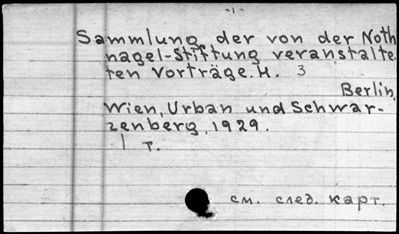 -1-
Sammlung der von der Noth
nagel-Stiftung veranstalte
ten Vorträge. H. 3
Berlin,
Wien, Urban und Schwar-
zenberg, 1929.
1 т.
см. след. карт.